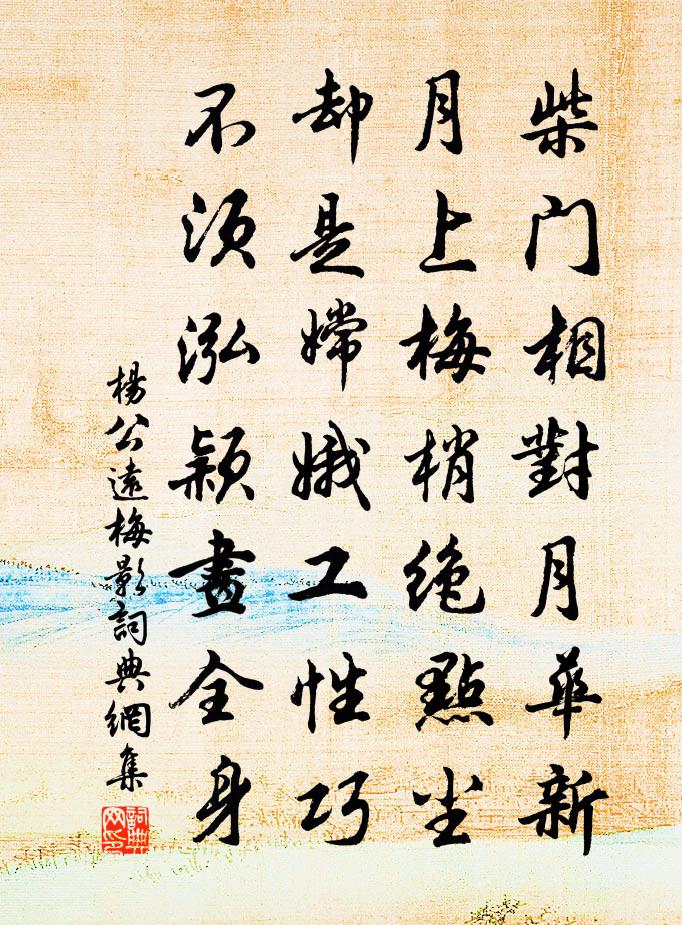 柴门相對月華新
月上梅梢絶點尘
却是嫦娥工性巧
不须泓穎畫全身
楊公遠梅影詞典網集
詞典网印